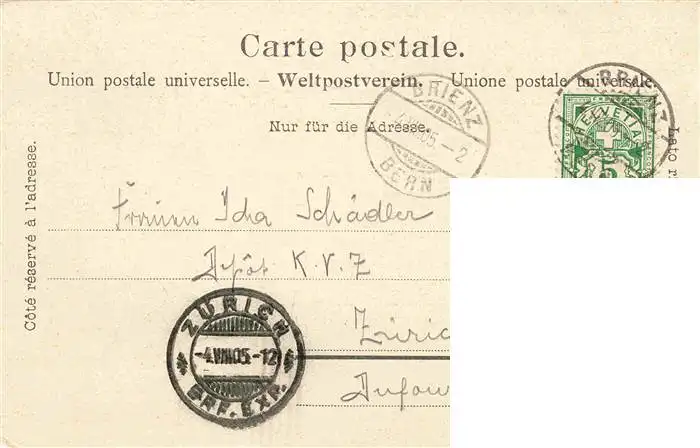 Carte postale.
Union postale universelle. – Weltpostverein. Unione postale universale.
Nur für die Adresse.
BRIENZ
4.VIII.05.-2
BERN
BRIENZ
HELVETIA
5
Côté réservé à l'adresse.
Lato r
Ida Schädler
Depôt K.V.Z
Züric
Dufou
ZÜRICH
-4.VIII.05.-12
BRF. EXP.